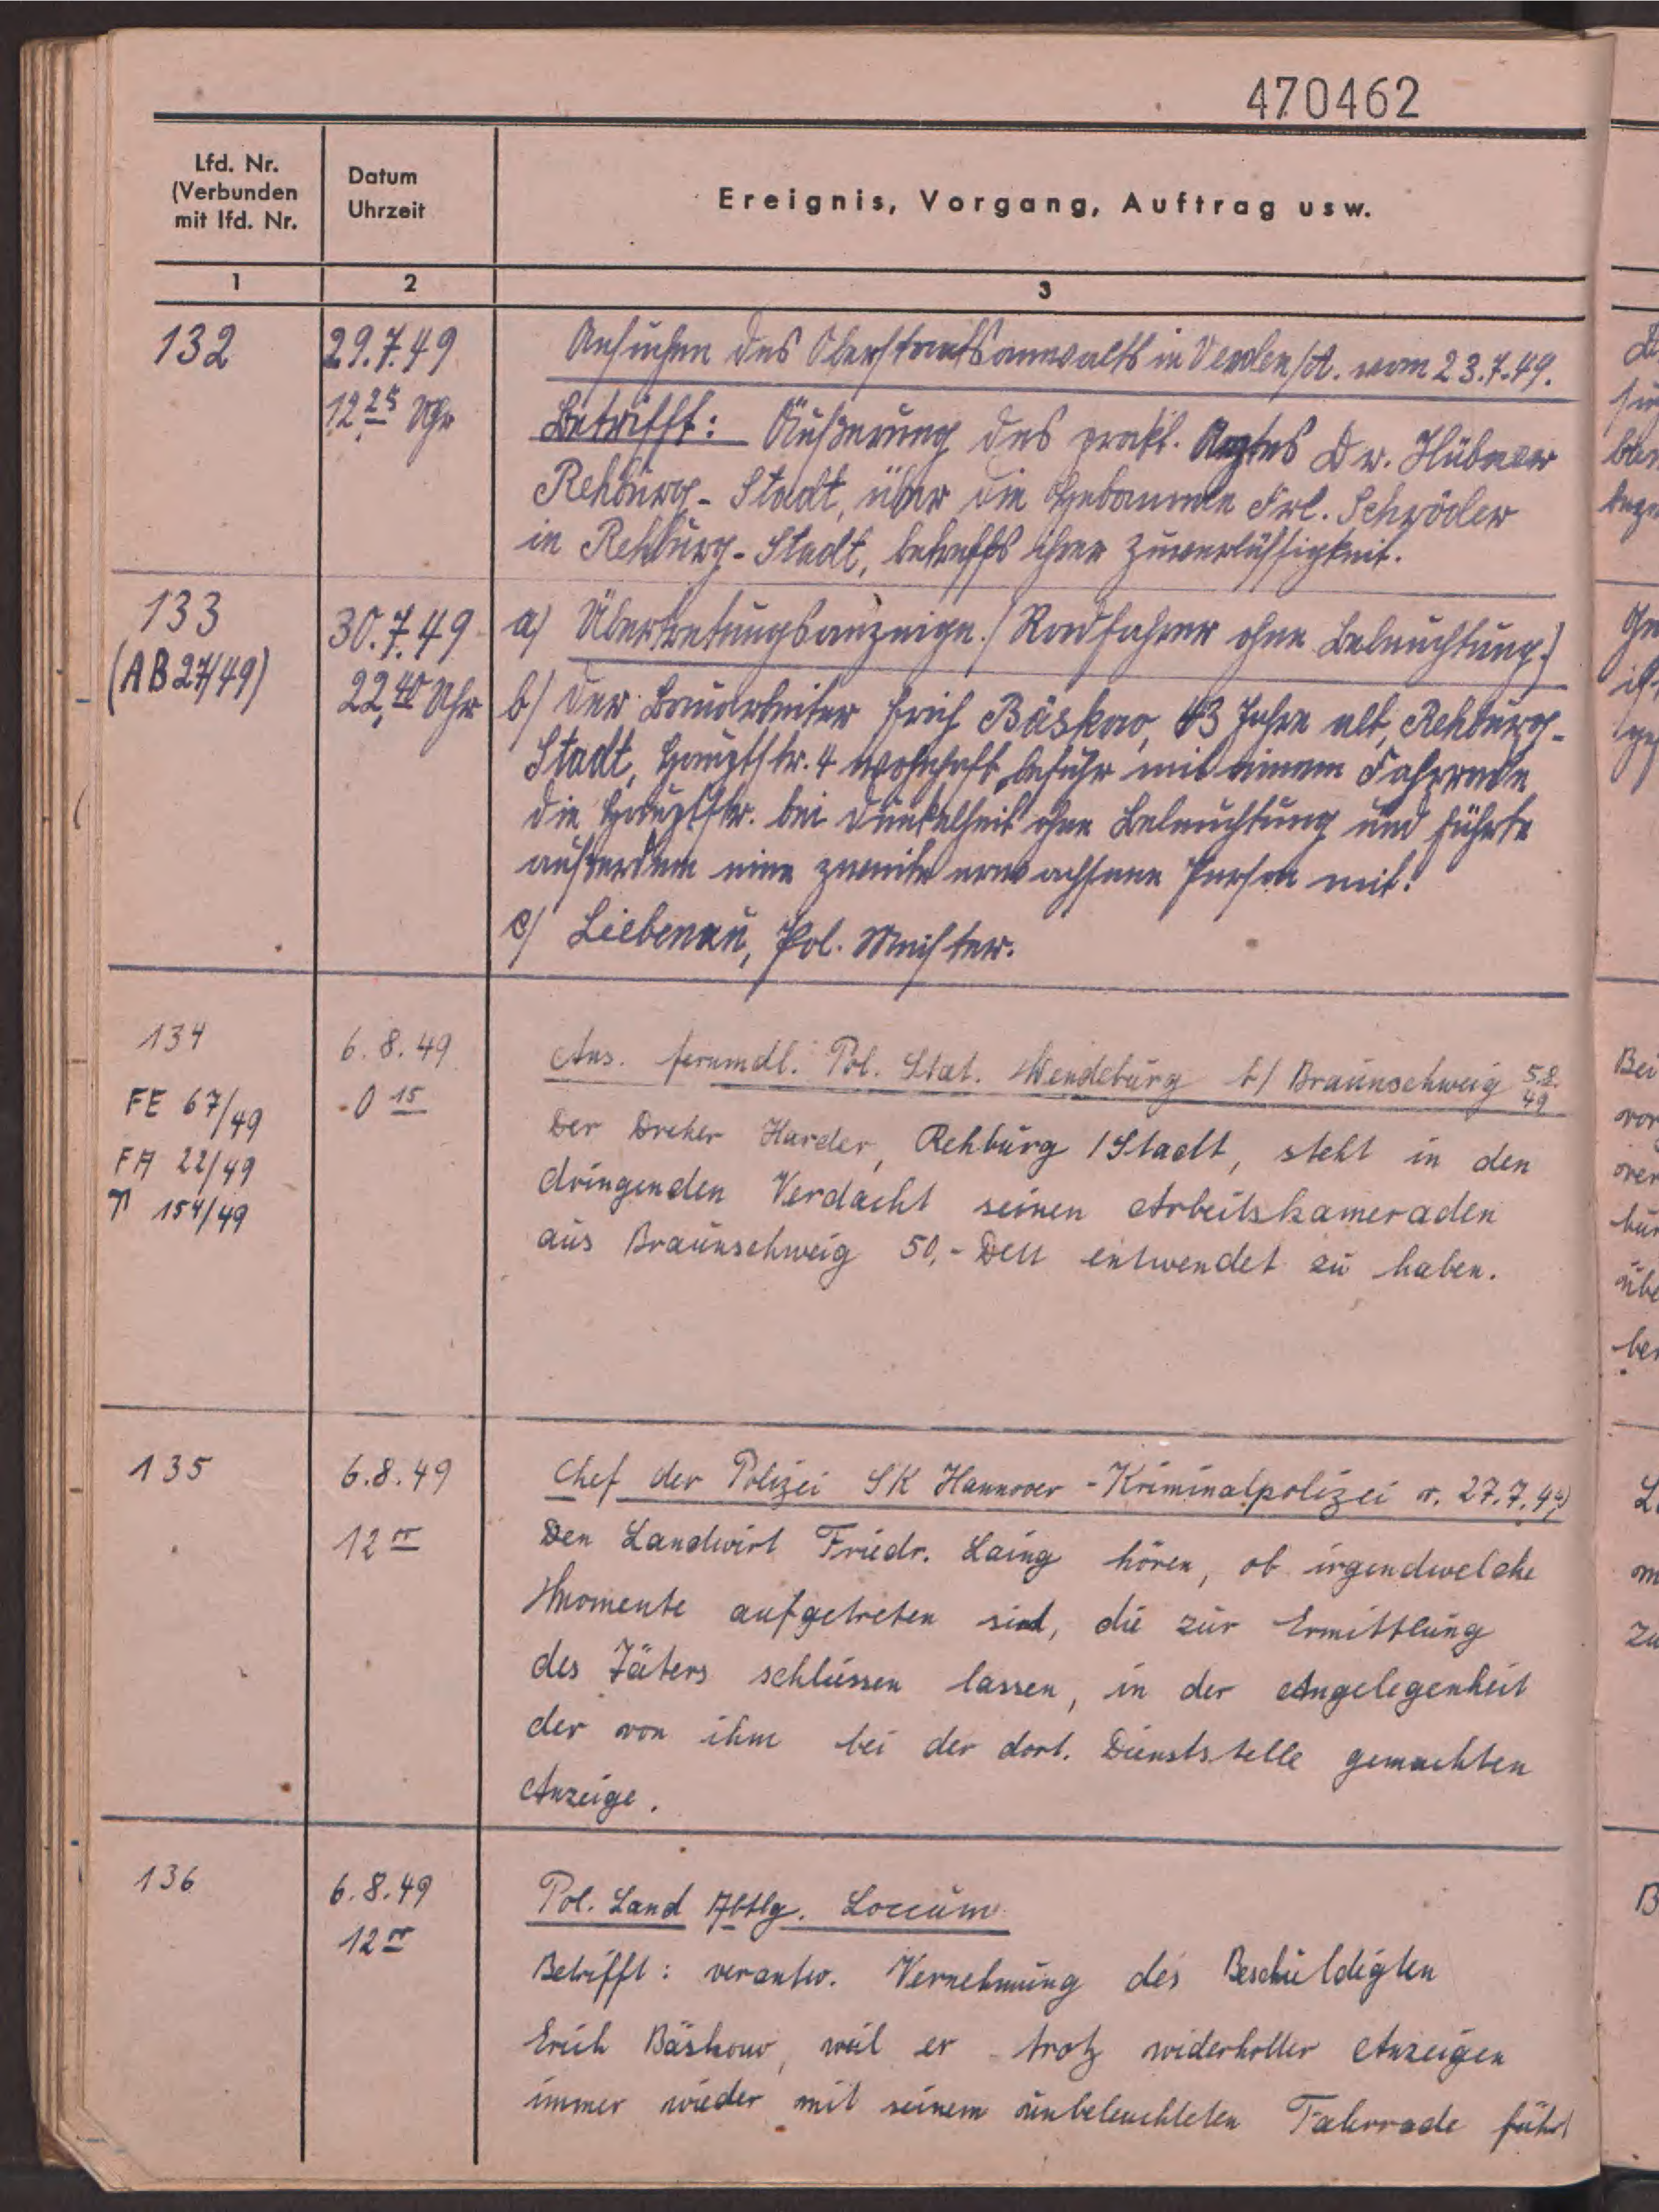 470462
Lfd. Nr.
(Verbunden
mit lfd. Nr.
Datum
Uhrzeit
Ereignis, Vorgang, Auftrag usw.
1
2
3
132
29.7.49
12 25 Uhr
Ansuchen des Oberstaatsanwalts in Verden/A. vom 23.7.49.
Betrifft: Äußerung des prakt. Arztes Dr. Hübner
Rehburg-Stadt, über die Hebamme Frl. Schröder
in Rehburg-Stadt, betreffs ihrer Zuverlässigkeit.
133
(AB 27/49)
30.7.49
22,40 Uhr
a) Übertretungsanzeige. (Radfahrer ohne Beleuchtung.)
b) Der Bauarbeiter Erich Bäskow, 43 Jahre alt, Rehburg-
Stadt, Hauptstr. 4 wohnhaft, befuhr mit einem Fahrrade
die Hauptstr. bei Dunkelheit ohne Beleuchtung und führte
außerdem eine zweite erwachsene Person mit.
c) Liebenau, Pol. Meister.
134
FE 67/49
FA 22/49
T 154/49
6.8.49
0 15
Ans. fernmdl. Pol. Stat. Wendeburg b/ Braunschweig 5.8.49
Der Dreher Harder, Rehburg /Stadt, steht in den
dringenden Verdacht seinen Arbeitskameraden
aus Braunschweig 50,- DM entwendet zu haben.
135
6.8.49
12 00
Chef der Polizei SK Hannover - Kriminalpolizei v. 27.7.49
Den Landwirt Friedr. Laing hören, ob irgendwelche
Momente aufgetreten sind, die zur Ermittlung
des Täters schliessen lassen, in der Angelegenheit
der von ihm bei der dort. Dienststelle gemachten
Anzeige.
136
6.8.49
12 00
Pol. Land Abtlg. Loccum
Betrifft: verantw. Vernehmung des Beschuldigten
Erich Bäskow, weil er trotz widerholter Anzeigen
immer wieder mit seinem unbeleuchteten Fahrrade fährt